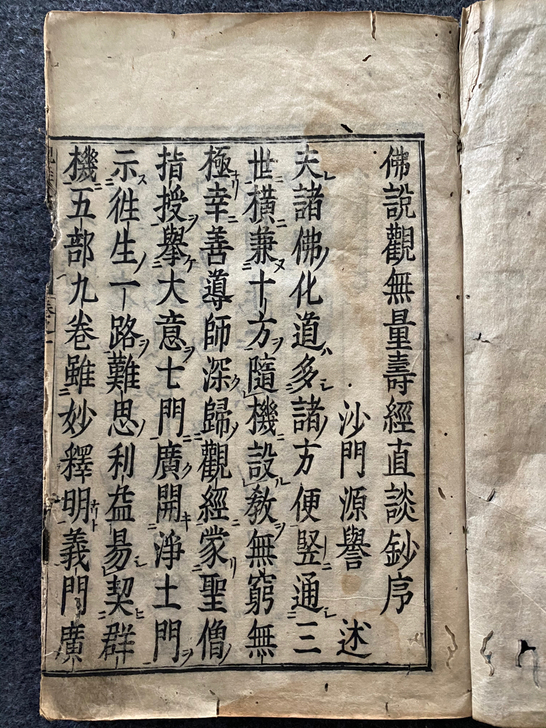 佛說觀無量壽經直談鈔序
沙門源譽 述
夫諸佛化道多諸方便竪通三
世橫兼十方隨機設教無窮無
極幸善導師深歸觀經蒙聖僧
指授擧大意七門廣開淨土門
示徃生一路難思利益易契群
機五部九卷雖妙釋明義門廣